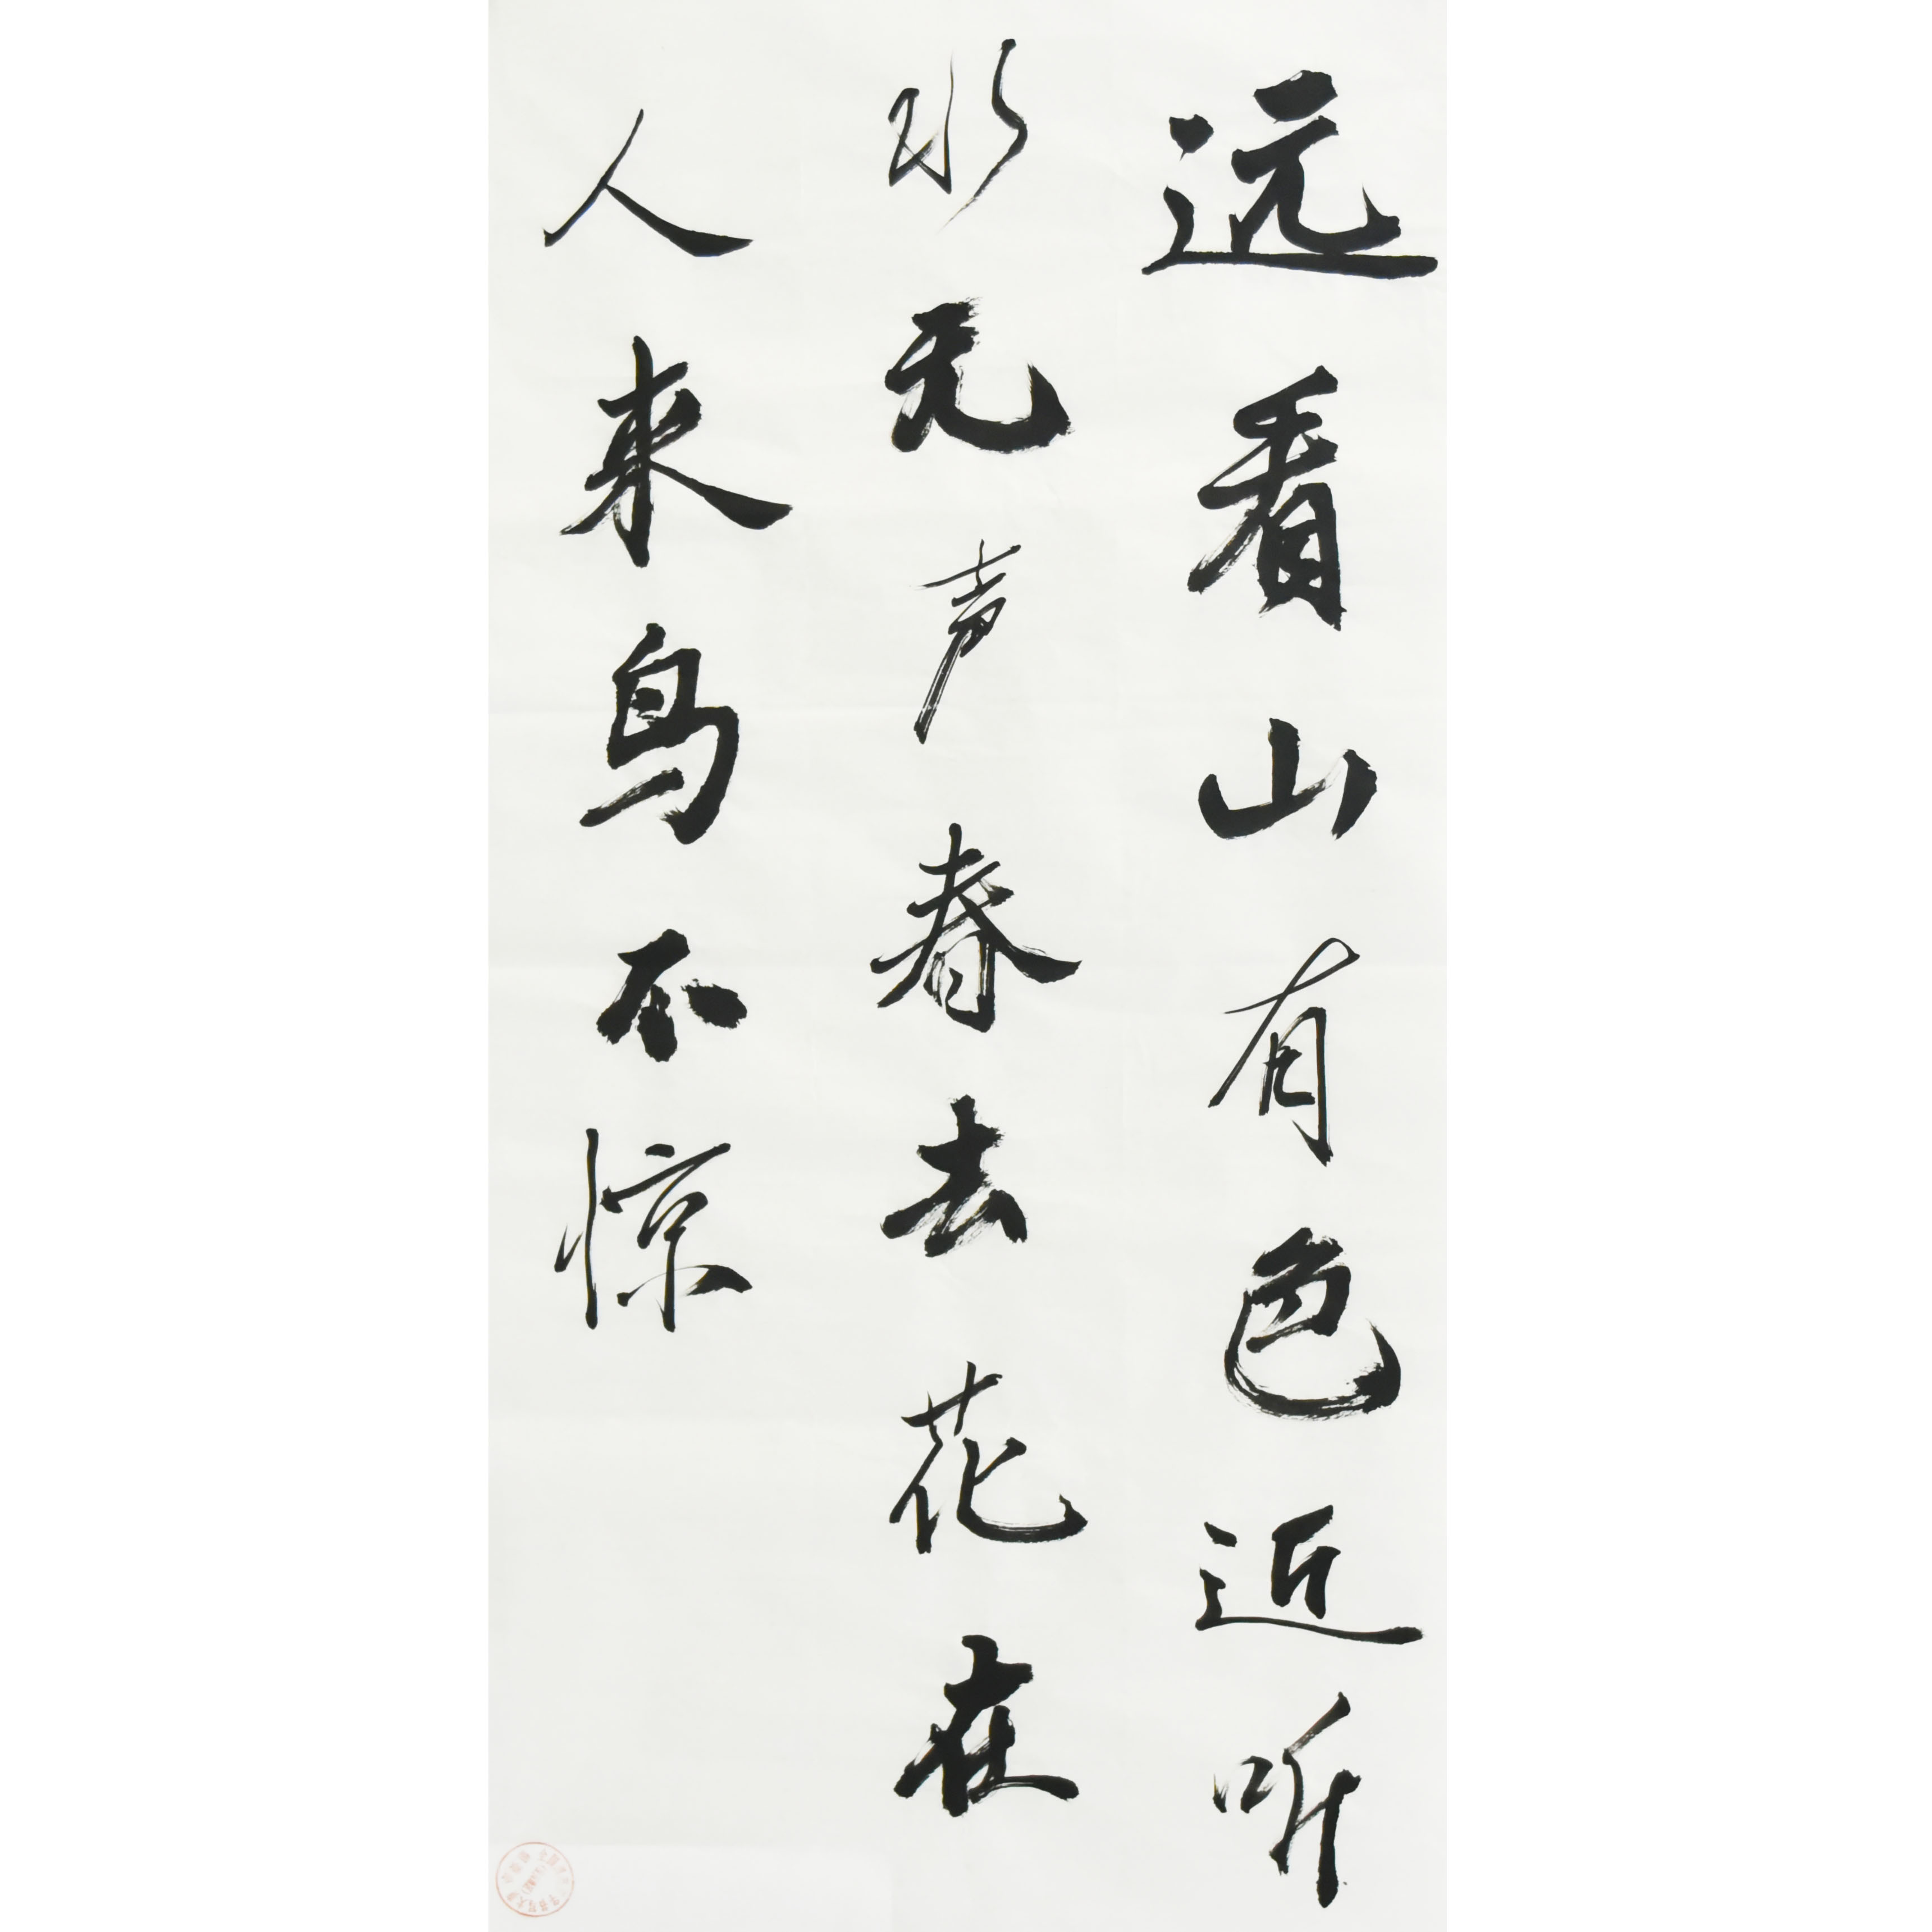 远看山有色近听
水无声春去花在
人来鸟不惊